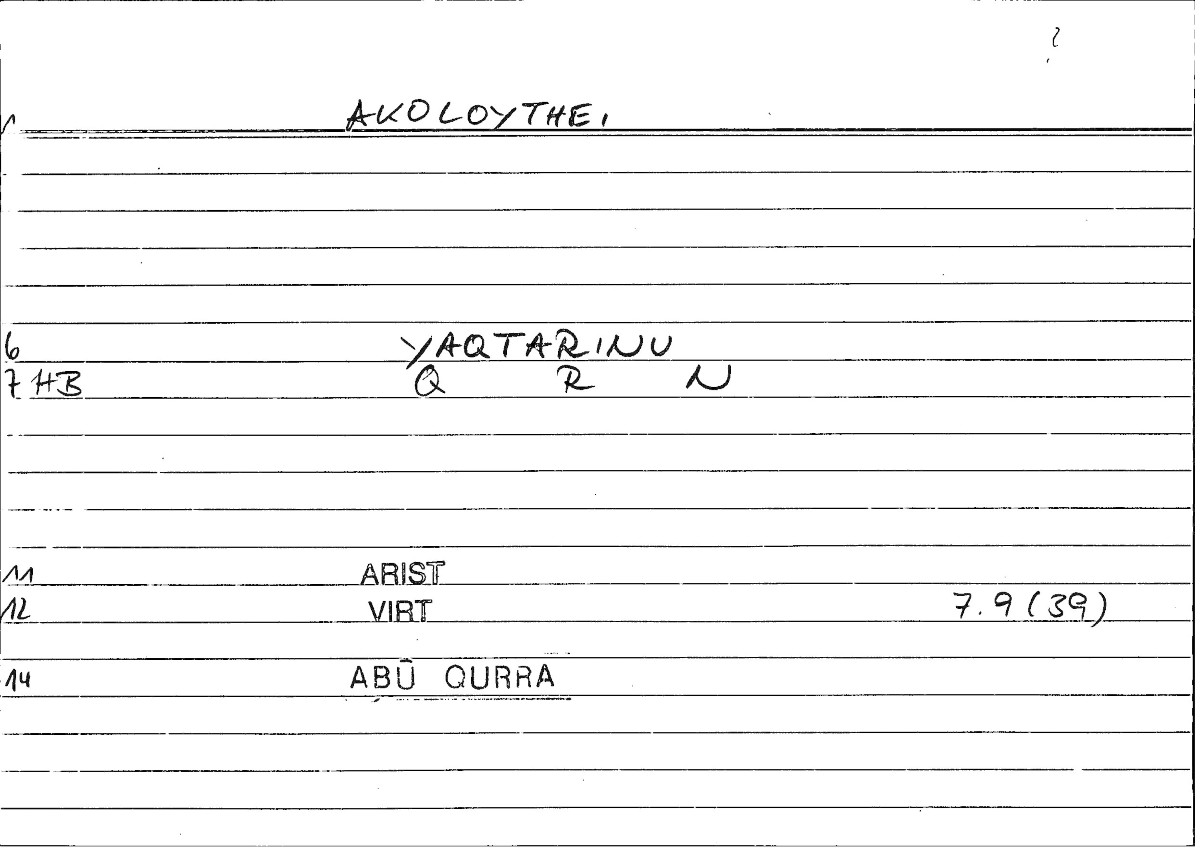 ?
1 AKOLOYTHEI
6 YAQTARINU
7 HB Q R N
11 ARIST
12 VIRT 7.9 (39)
14 ABŪ QURRA